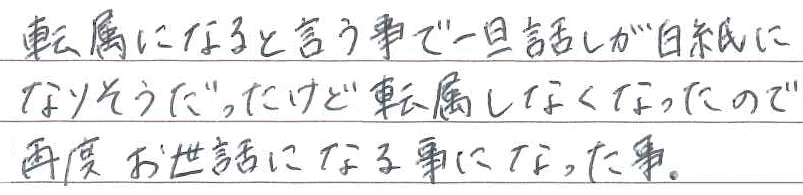 転属になると言う事で一旦話しが白紙に
なりそうだったけど転属しなくなったので
再度お世話になる事になった事。